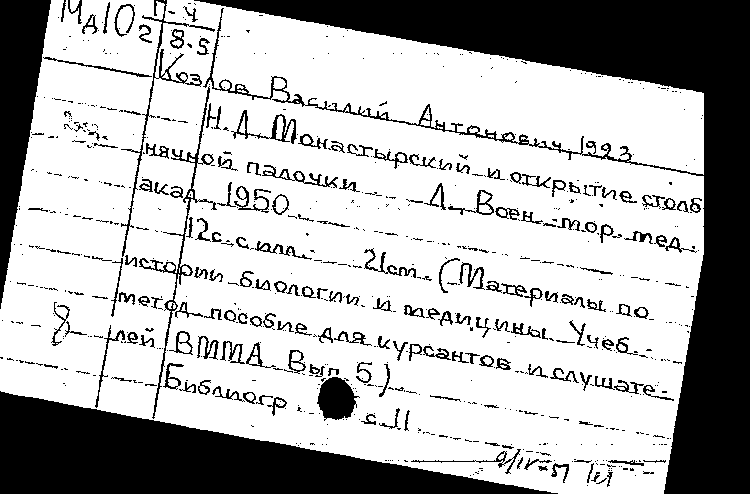 Мд10 П-Ч
2 8.5
Козлов, Василий Антонович, 1923
Н.Д. Монастырский и открытие столб
нячной палочки Л., Воен.-мор. мед.
акад., 1950.
12с. с илл. 21cm. (Материалы по
истории биологии и медицины Учеб.-
метод. пособие для курсантов и слушате-
8 лей ВММА Вып. 5)
Библиогр. с. 11.
9/IV-51